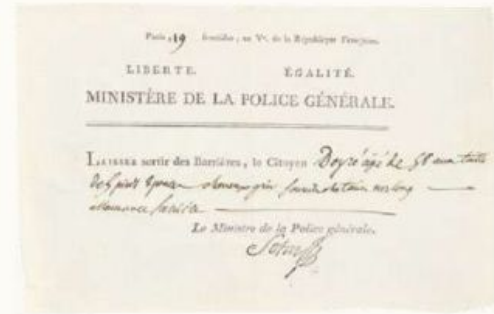 Paris, 19 fructidor, an Vᵉ. de la République Française.
LIBERTÉ. ÉGALITÉ.
MINISTÈRE DE LA POLICE GÉNÉRALE.
LAISSER sortir des Barrières, le Citoyen Doyré âgé de 58 ans taille
de 5 pieds
Le Ministre de la Police générale.
Sotin